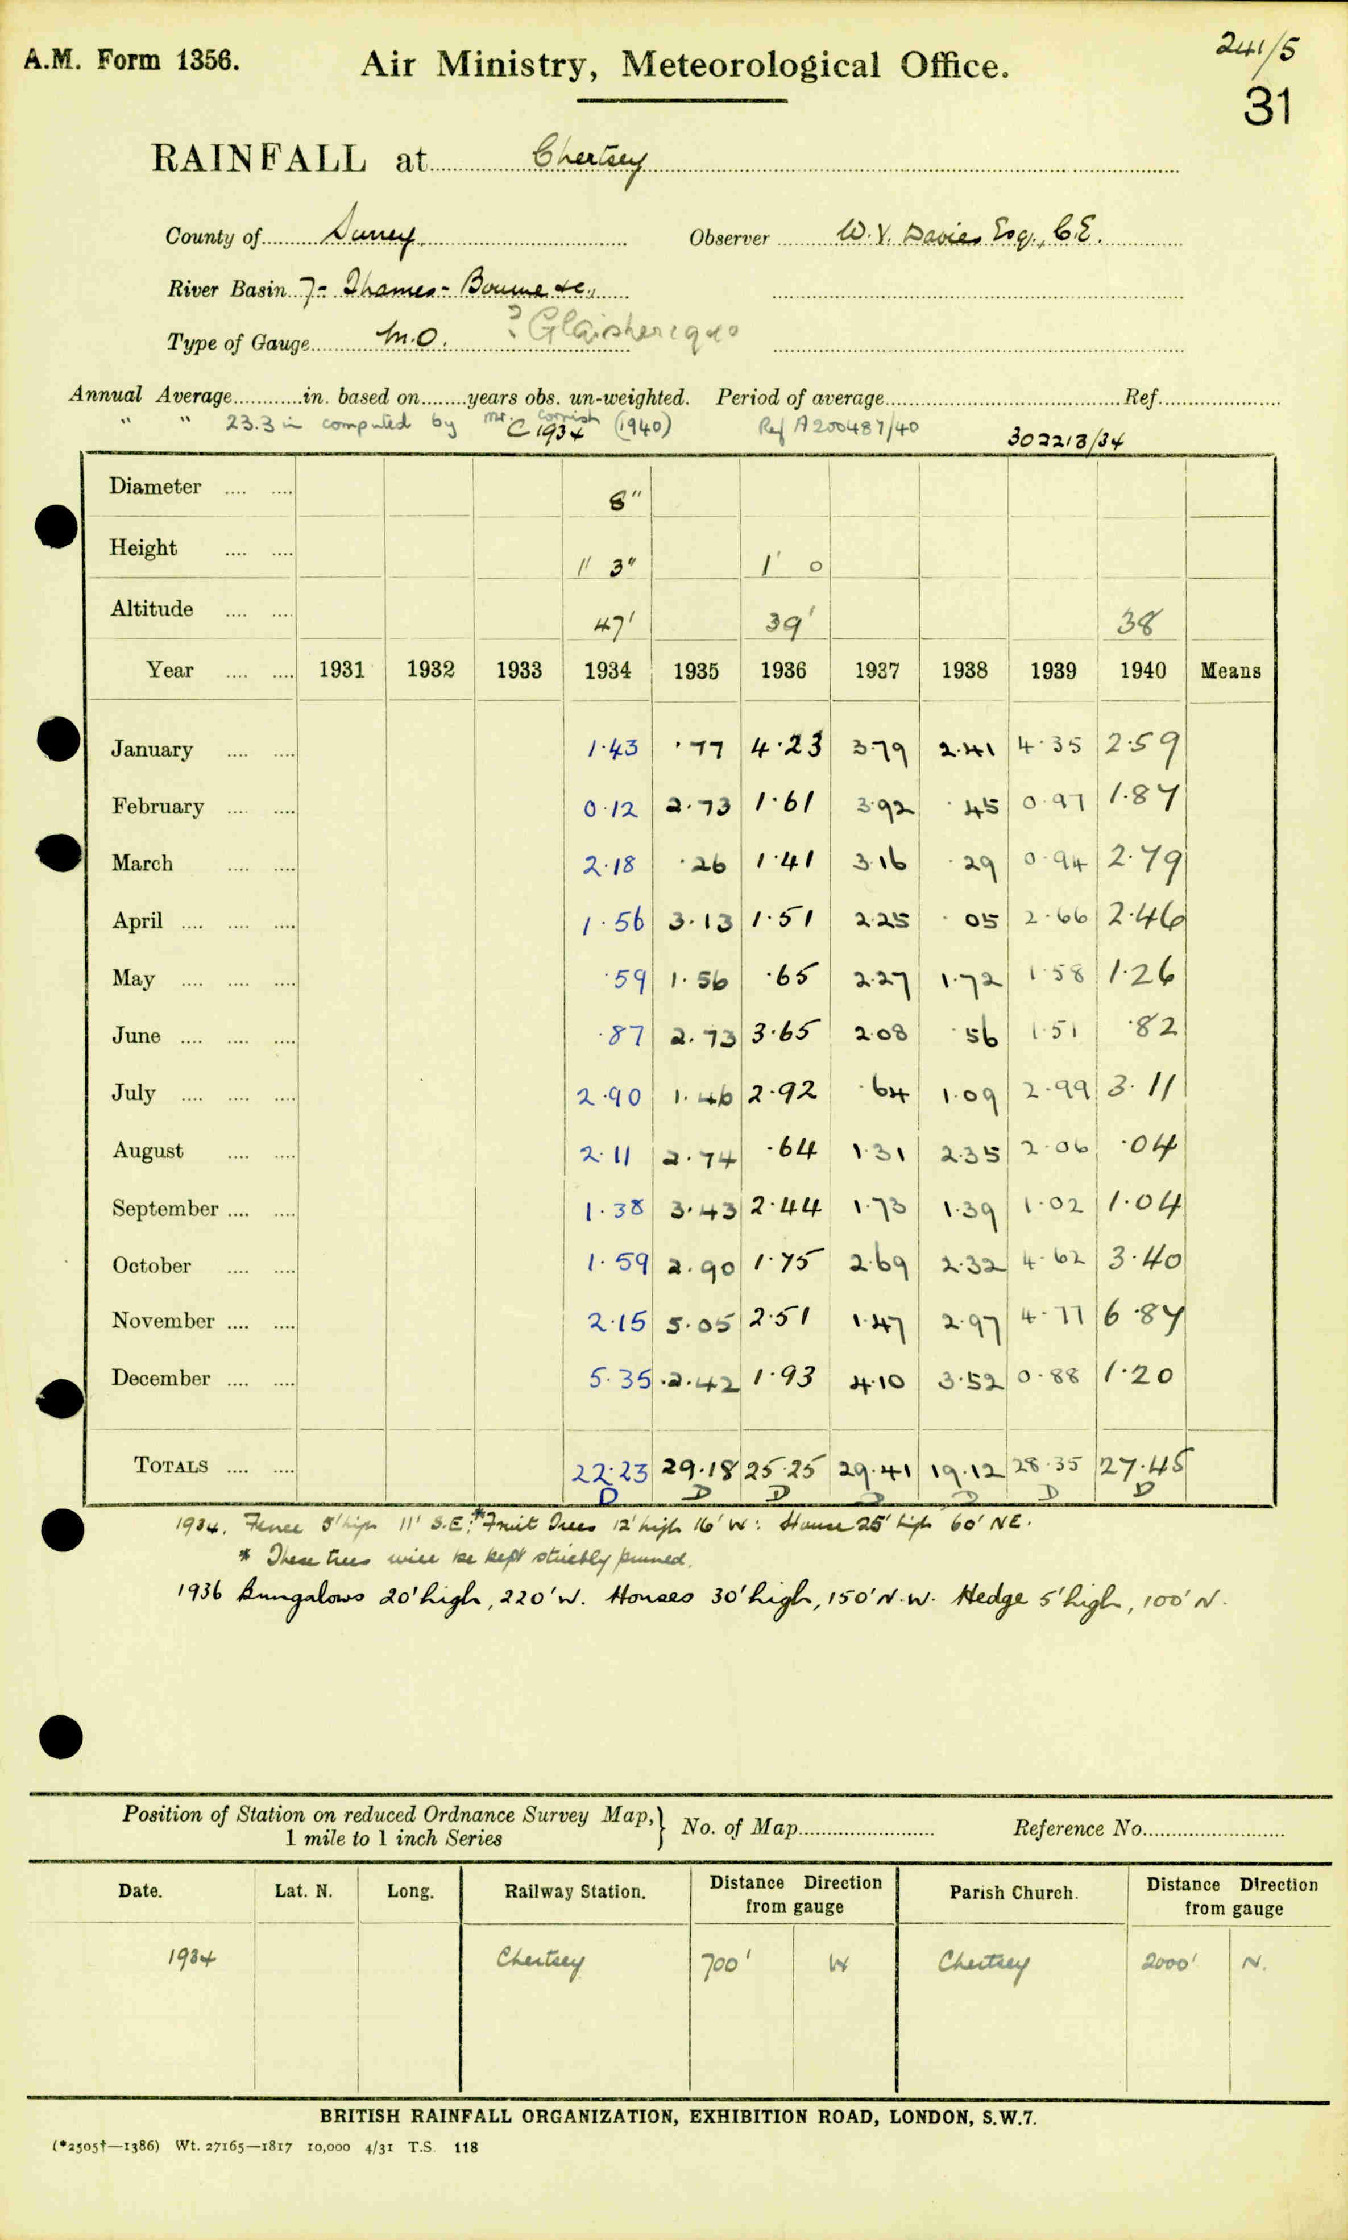 A.M. Form 1356.
Air Ministry, Meteorological Office.
241/5
31
RAINFALL at Chertsey
County of Surrey Observer W. V. Davies Esq., C.E.
River Basin 7 - Thames - Bourne &c.,
Type of Gauge M.O. ?
Annual Average in. based on years obs. un-weighted. Period of average Ref.
" " 23.3 in computed by Mr. Cornish (1940) Ref A200487/40
C 1934 302213/34
Diameter 8"
Height 1' 3" 1' 0
Altitude 47' 39' 38
Year 1931 1932 1933 1934 1935 1936 1937 1938 1939 1940 Means
January 1.43 .77 4.23 3.79 2.41 4.35 2.59
February 0.12 2.73 1.61 3.92 .45 0.97 1.87
March 2.18 .26 1.41 3.16 .29 0.94 2.79
April 1.56 3.13 1.51 2.25 .05 2.66 2.46
May .59 1.56 .65 2.27 1.72 1.58 1.26
June .87 2.73 3.65 2.08 .56 1.51 .82
July 2.90 1.46 2.92 .64 1.09 2.99 3.11
August 2.11 2.74 .64 1.31 2.35 2.06 .04
September 1.38 3.43 2.44 1.73 1.39 1.02 1.04
October 1.59 2.90 1.75 2.69 2.32 4.62 3.40
November 2.15 5.05 2.51 1.47 2.97 4.77 6.87
December 5.35 2.42 1.93 4.10 3.52 0.88 1.20
TOTALS 22.23 29.18 25.25 29.41 19.12 28.35 27.45
D D D D D D D
1934. Fence 5' high 11' S.E: *Fruit Trees 12' high 16' W: House 25' high 60' NE.
* These trees will be kept strictly pruned.
1936 Bungalows 20' high, 220' W. Houses 30' high, 150' N.W. Hedge 5' high, 100' N.
Position of Station on reduced Ordnance Survey Map, } No. of Map Reference No.
1 mile to 1 inch Series
Date. Lat. N. Long. Railway Station. Distance Direction from gauge Parish Church. Distance Direction from gauge
1934 Chertsey 700' W Chertsey 2000' N.
BRITISH RAINFALL ORGANIZATION, EXHIBITION ROAD, LONDON, S.W.7.
(*2505†—1386) Wt. 27165—1817 10,000 4/31 T.S. 118